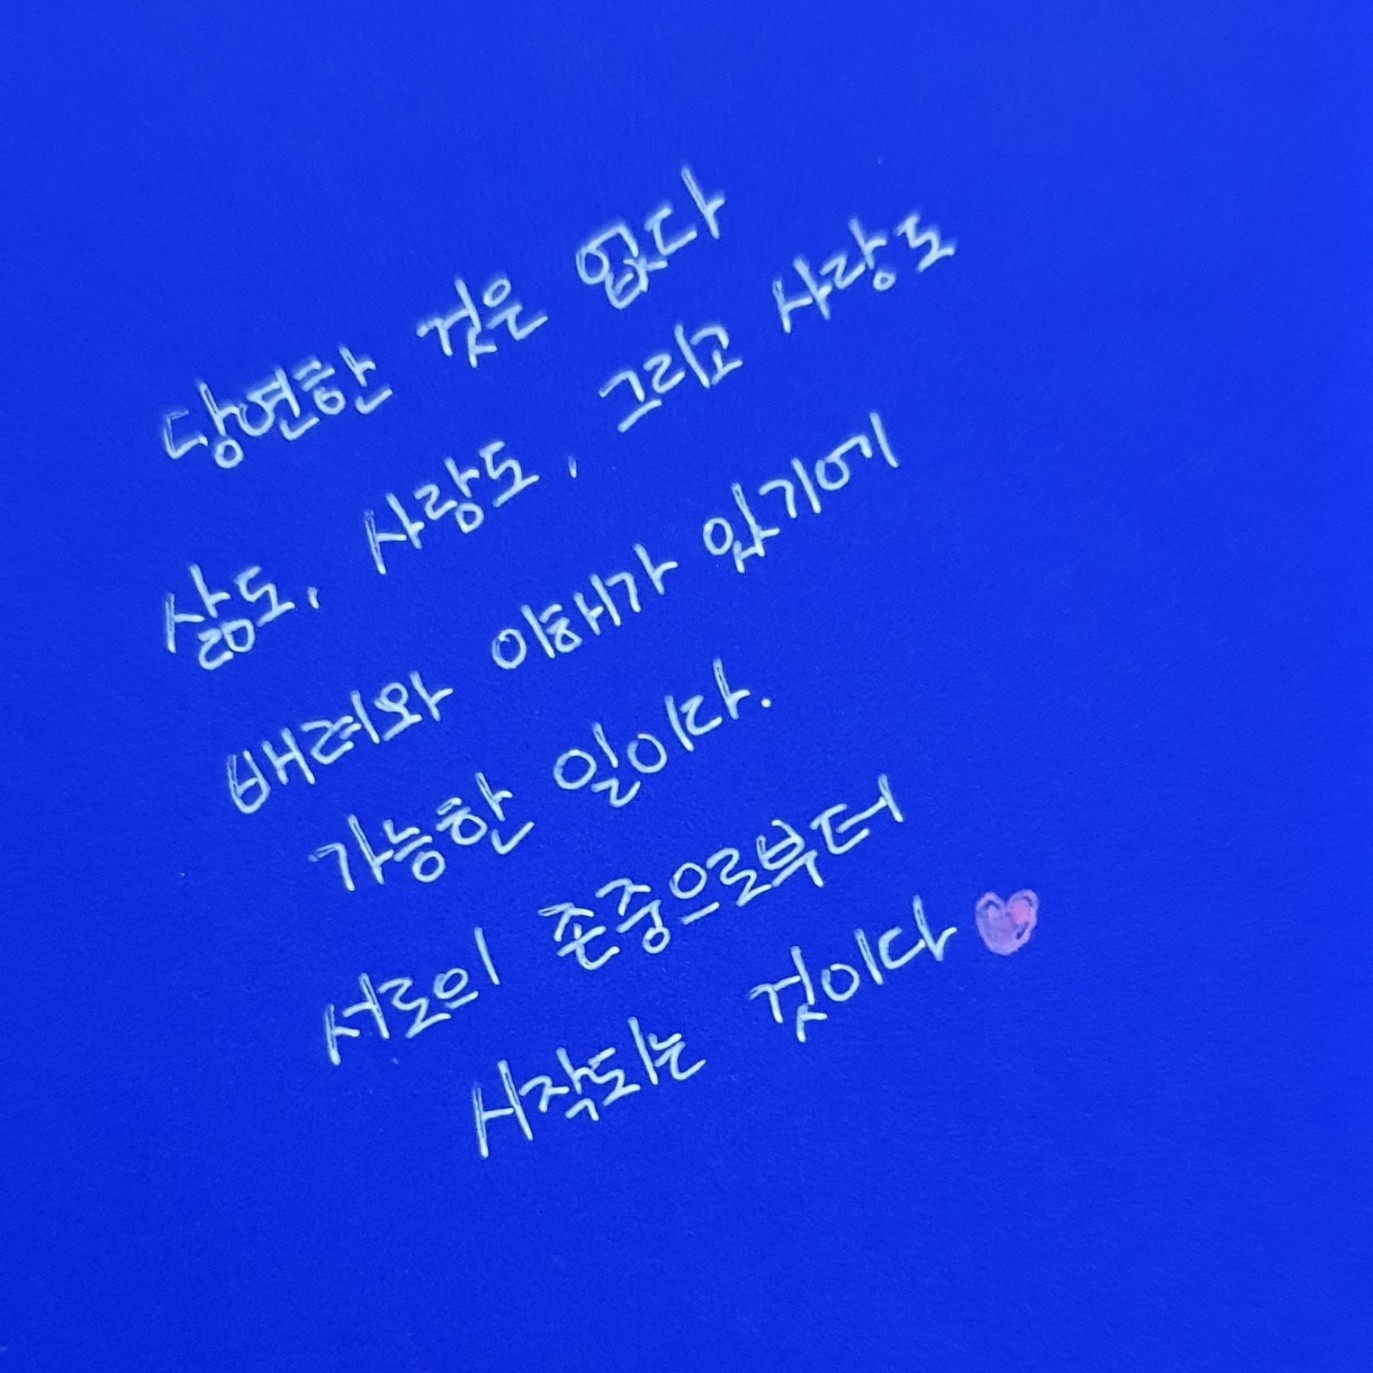 당연한 것은 없다
삶도, 사랑도, 그리고 사랑도
배려와 이해가 있기에
가능한 일이다.
서로의 존중으로부터
시작되는 것이다